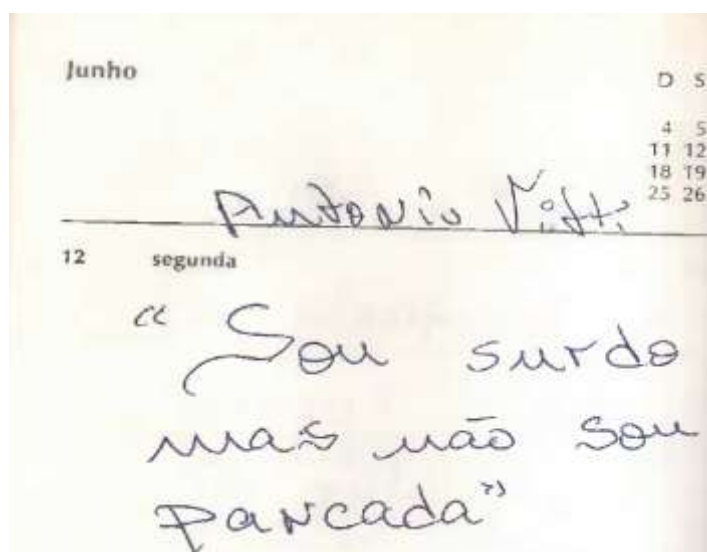 Junho
D S
4 5
11 12
18 19
25 26
Antonio Vitti
12 segunda
“ Sou surdo
mas não sou
pancada”